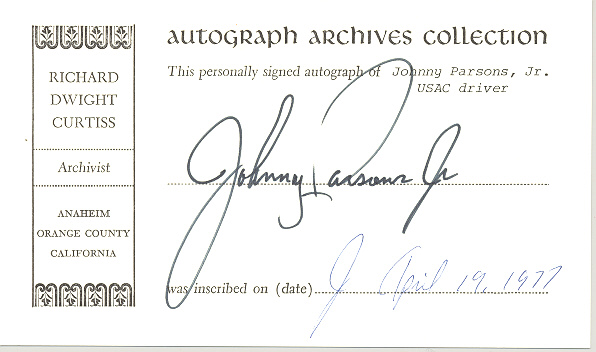 AUTOGRAPH ARCHIVES COLLECTION
RICHARD
DWIGHT
CURTISS
Archivist
ANAHEIM
ORANGE COUNTY
CALIFORNIA
This personally signed autograph of Johnny Parsons, Jr.
USAC driver
Johnny Parsons Jr
was inscribed on (date) April 19, 1977